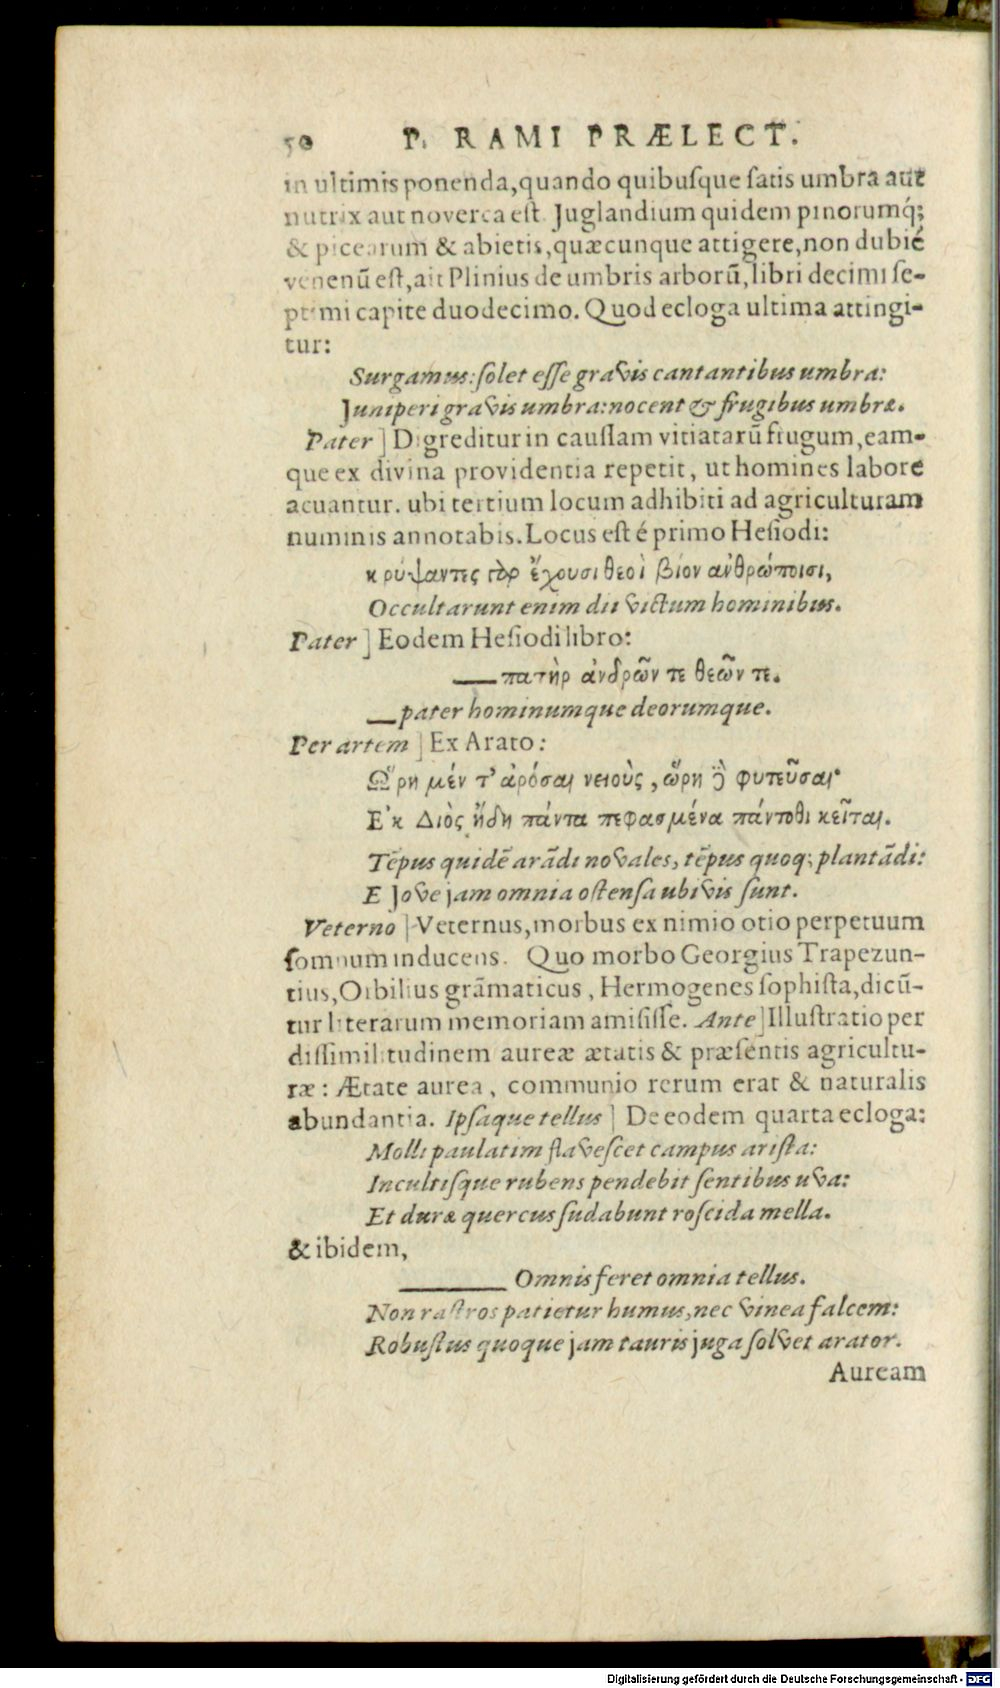 50 P. RAMI PRÆLECT.
in ultimis ponenda, quando quibuſque ſatis umbra aut
nutrix aut noverca eſt. Juglandium quidem pinorumq́;
& picearum & abietis, quæcunque attigere, non dubié
venenū eſt, ait Plinius de umbris arborū, libri decimi ſe-
ptimi capite duodecimo. Quod ecloga ultima attingi-
tur:
Surgamus: ſolet eſſe gravis cantantibus umbra:
Juniperi gravis umbra: nocent & frugibus umbræ.
Pater ] Digreditur in cauſſam vitiatarū frugum, eam-
que ex divina providentia repetit, ut homines labore
acuantur. ubi tertium locum adhibiti ad agriculturam
numinis annotabis. Locus eſt é primo Heſiodi:
κρύψαντες γὰρ ἔχουσι θεοὶ βίον ἀνθρώποισι,
Occultarunt enim dii victum hominibus.
Pater ] Eodem Heſiodi libro:
— πατὴρ ἀνδρῶν τε θεῶν τε.
— pater hominumque deorumque.
Per artem ] Ex Arato:
Ὥρη μέν τ' ἀρόσαι νειοὺς, ὥρη δὲ φυτεῦσαι·
Ἐκ Διὸς ἤδη πάντα πεφασμένα πάντοθι κεῖται.
Tēpus quidē arādi novales, tēpus quoq; plantādi:
E Jove jam omnia oſtenſa ubivis ſunt.
Veterno ] Veternus, morbus ex nimio otio perpetuum
ſomnum inducens. Quo morbo Georgius Trapezun-
tius, Orbilius grāmaticus, Hermogenes ſophiſta, dicū-
tur literarum memoriam amiſiſſe. Ante ] Illuſtratio per
diſſimilitudinem aureæ ætatis & præſentis agricultu-
ræ: Ætate aurea, communio rerum erat & naturalis
abundantia. Ipſaque tellus ] De eodem quarta ecloga:
Molli paulatim flaveſcet campus ariſta:
Incultiſque rubens pendebit ſentibus uva:
Et duræ quercus ſudabunt roſcida mella.
& ibidem,
— Omnis feret omnia tellus.
Non raſtros patietur humus, nec vinea falcem:
Robuſtus quoque jam tauris juga ſolvet arator.
Auream
Digitalisierung gefördert durch die Deutsche Forschungsgemeinschaft - DFG